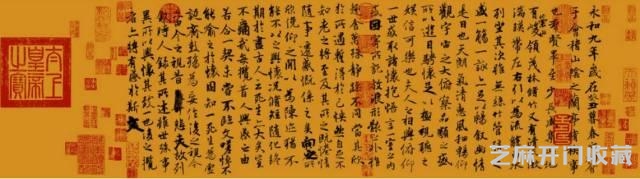 永和九年歲在癸丑暮春之初會
于會稽山陰之蘭亭脩稧事
也群賢畢至少長咸集此地
有崇山峻領茂林脩竹又有清流激
湍暎帶左右引以為流觴曲水
列坐其次雖無絲竹管弦之
盛一觴一詠亦足以暢敘幽情
是日也天朗氣清惠風和暢仰
觀宇宙之大俯察品類之盛
所以遊目騁懷足以極視聽之
娛信可樂也夫人之相與俯仰
一世或取諸懷抱悟言一室之內
或因寄所託放浪形骸之外雖
趣舍萬殊靜躁不同當其欣
於所遇蹔得於己怏然自足不
知老之將至及其所之既惓情
隨事遷感慨係之矣向之所
欣俛仰之閒以為陳迹猶不
能不以之興懷況脩短隨化終
期於盡古人云死生亦大矣豈
不痛哉每攬昔人興感之由
若合一契未嘗不臨文嗟悼不
能喻之於懷固知一死生為虛
誕齊彭殤為妄作後之視今
亦由今之視昔悲夫故列
敘時人錄其所述雖世殊事
異所以興懷其致一也後之攬
者亦將有感於斯文
太上
皇帝
之寶
芝麻开门收藏